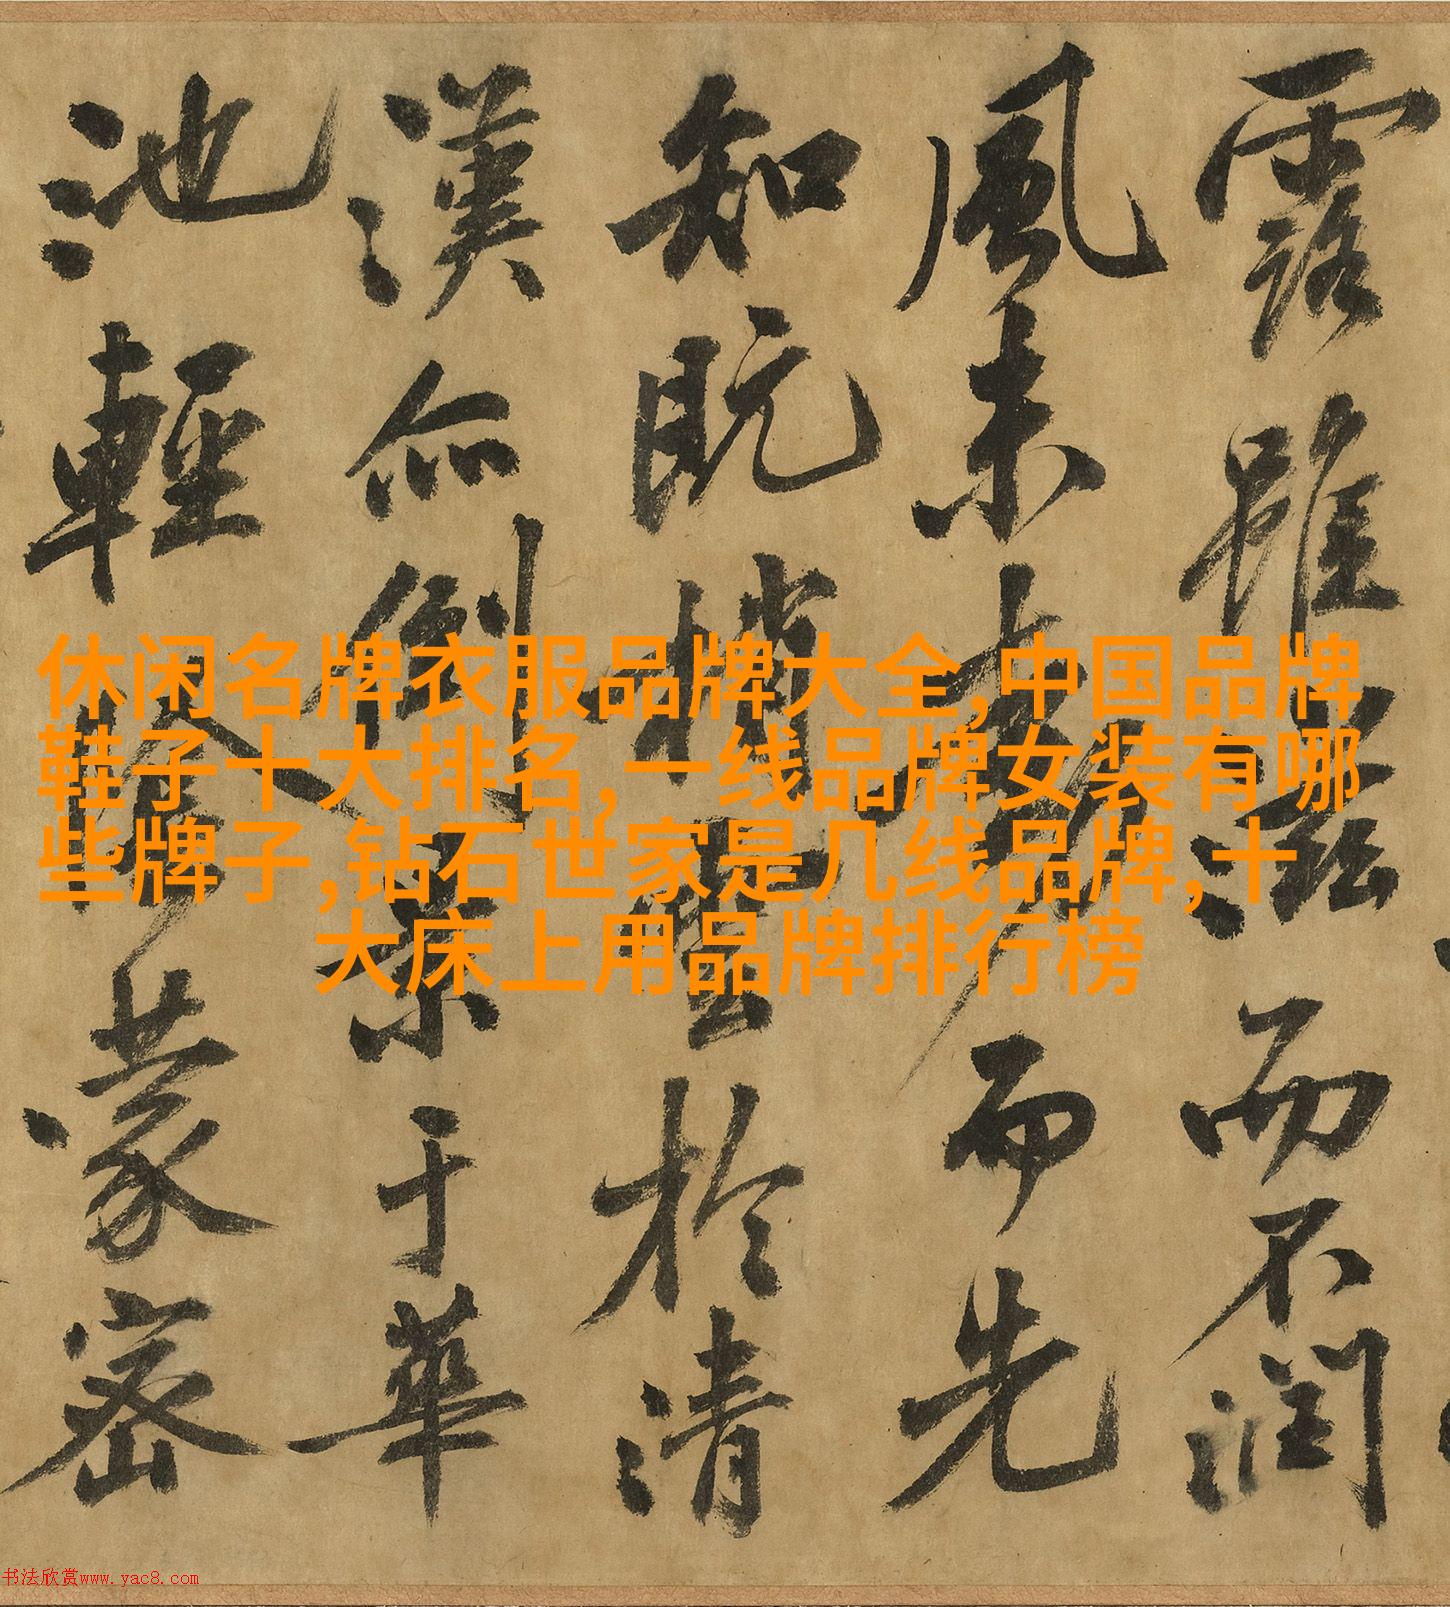 露雖滋而不潤
風未而先
知既梢雲於清
漢亦倒景于華
池輕陰蒙密
休闲名牌衣服品牌大全,中国品牌
鞋子十大排名,一线品牌女装有哪
些牌子,钻石世家是几线品牌,十
大床上用品牌排行榜
书法欣赏www.yac8.com